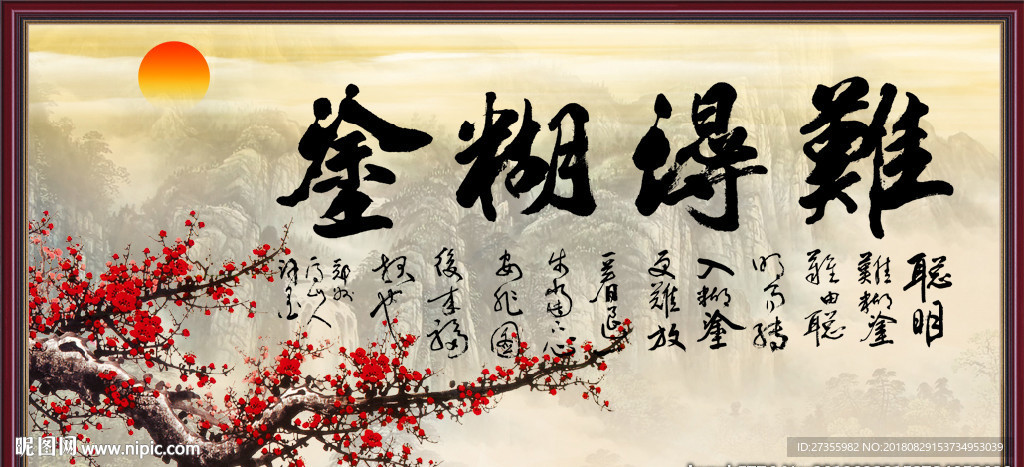 難得糊塗
聰明
難糊塗
難由聰
明而轉
入糊塗
更難放
一著退
一步當下心
安非圖
後來福
報也
昵图网 www.nipic.com
ID:27355982 NO:20180829153734953039